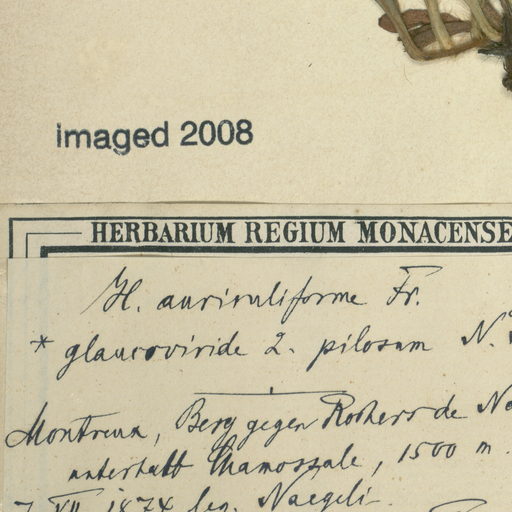 imaged 2008
HERBARIUM REGIUM MONACENSE
H. auriculiforme Fr.
* glaucoviride 2. pilosum N.
Montreux, Berg gegen Rochers de Na
unterhalb Chamossale, 1500 m.
7. VII. 1874 leg. Naegeli